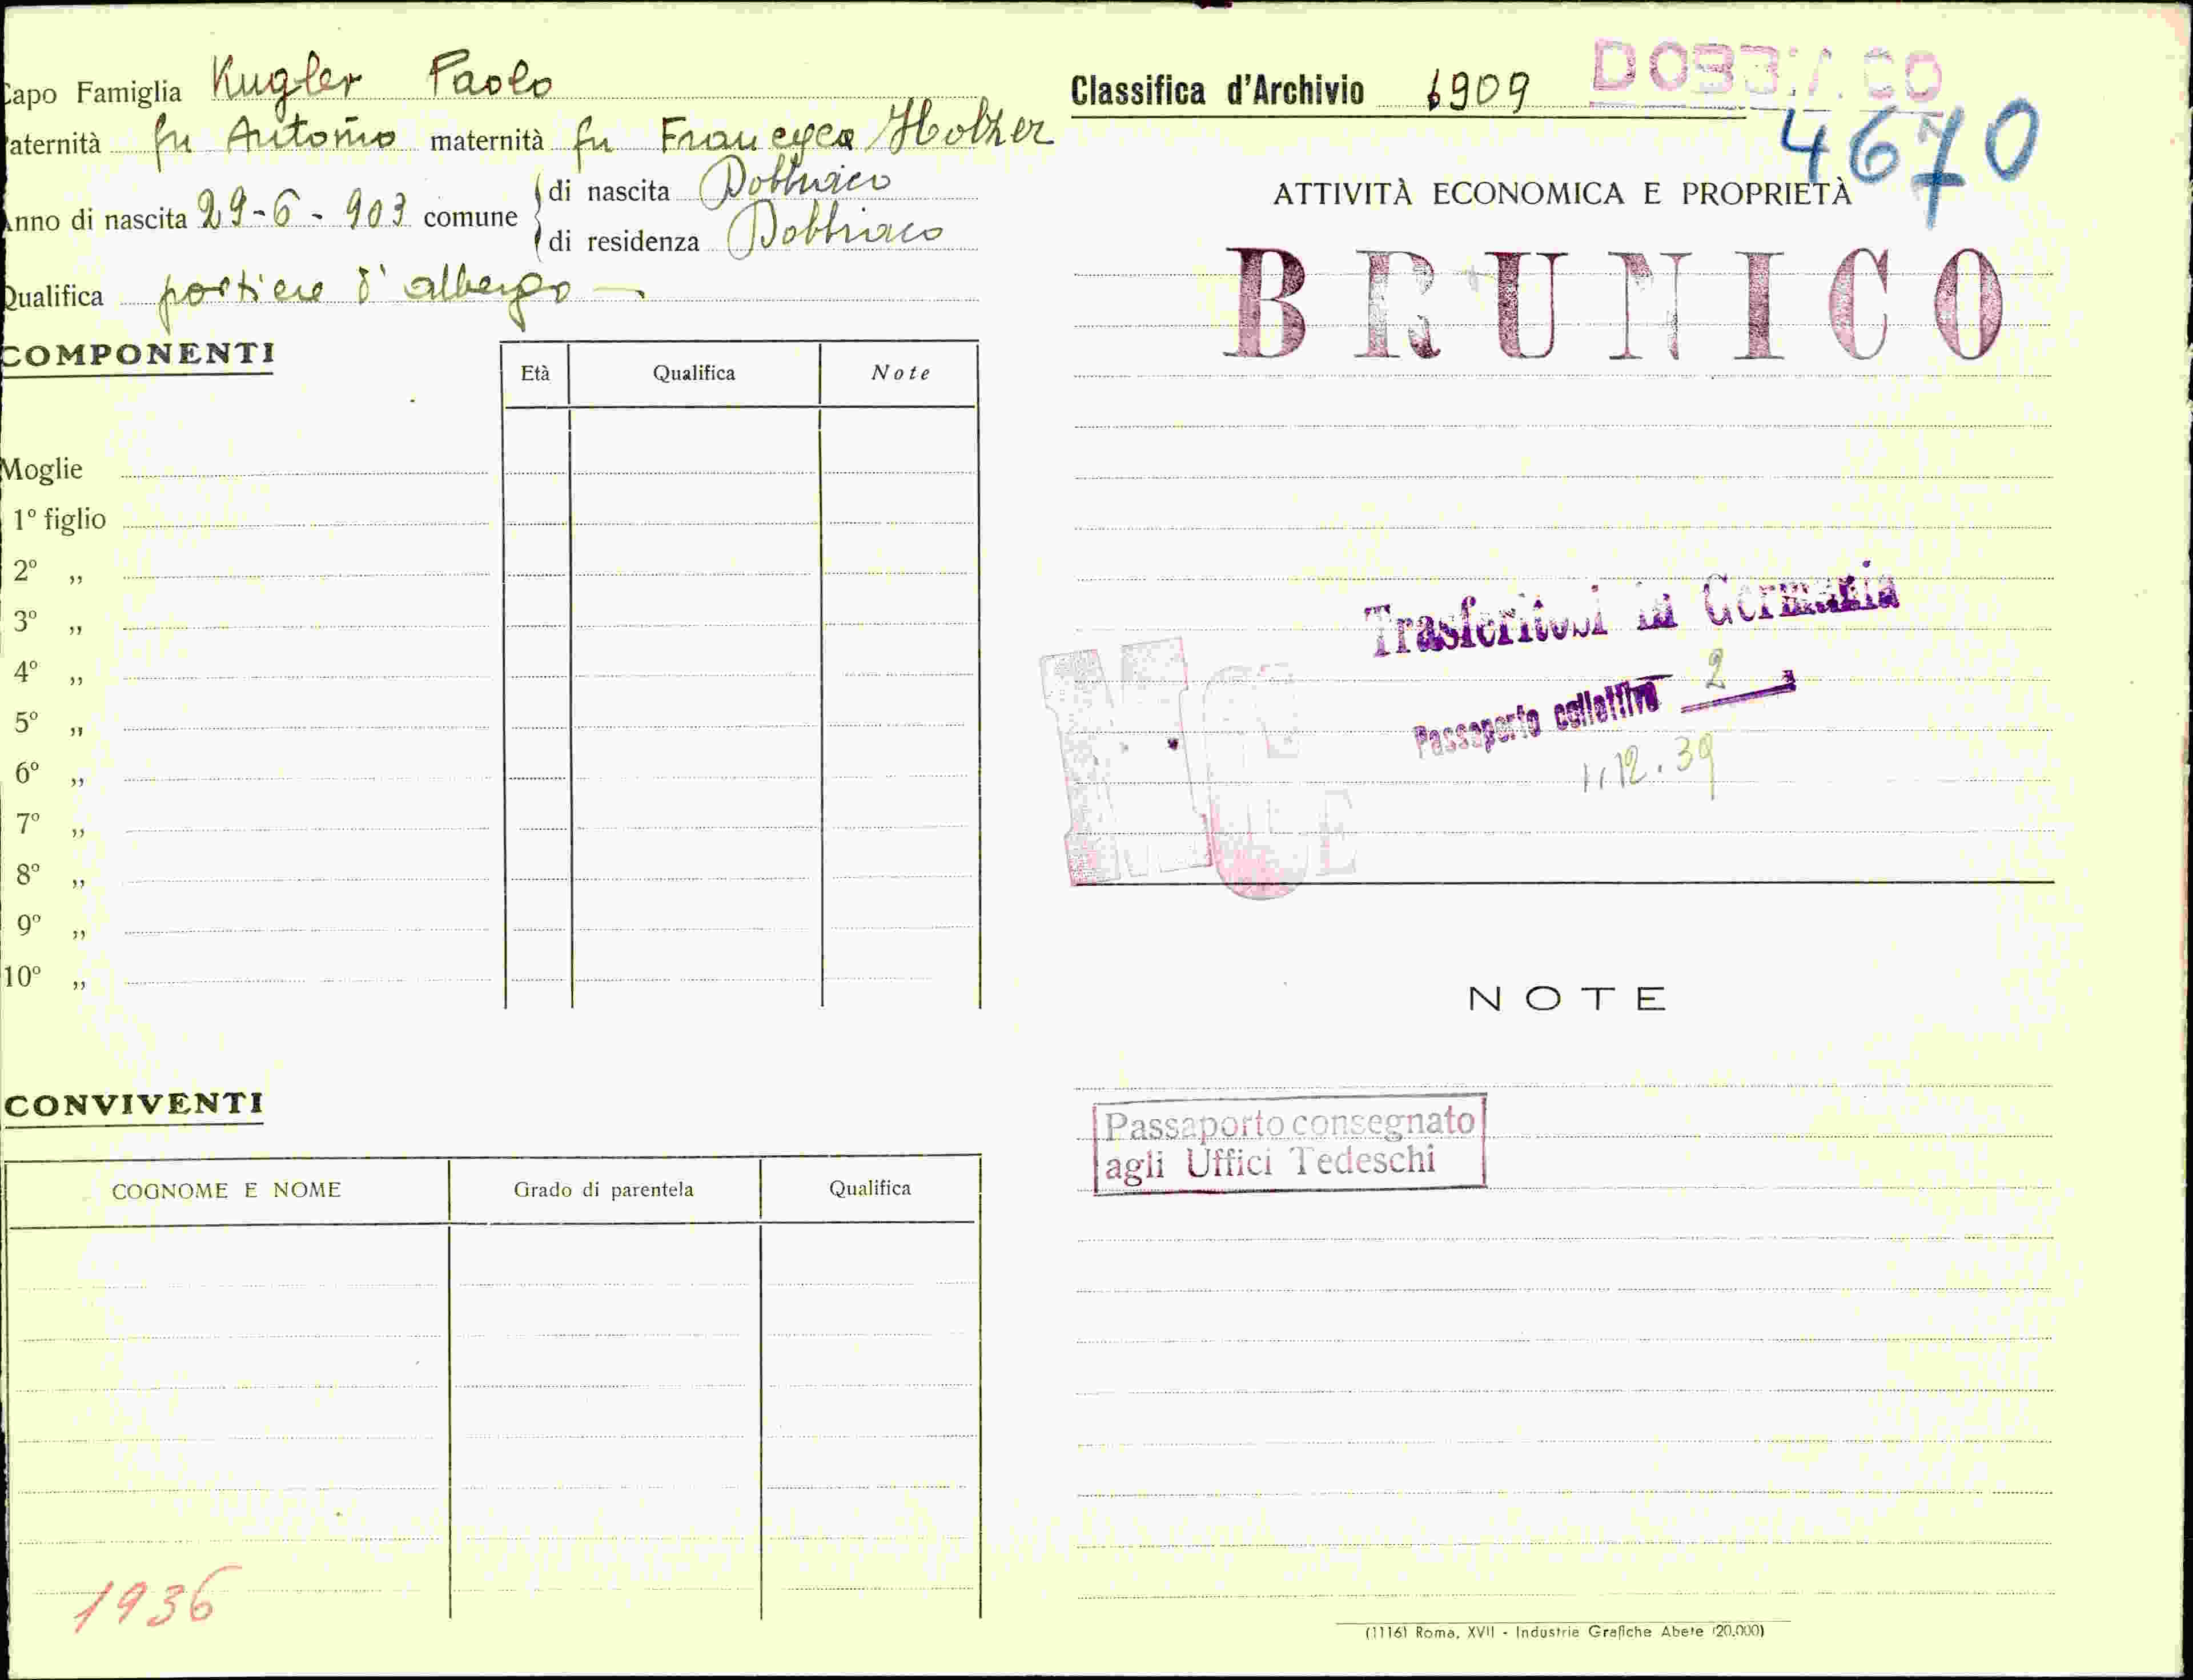 Capo Famiglia Kugler Paolo
Paternità fu Antonio maternità fu Francesca Holzer
Anno di nascita 29-6-903 comune di nascita Dobbiaco
di residenza Dobbiaco
Qualifica portiere d'albergo
COMPONENTI
Età Qualifica Note
Moglie
1º figlio
2º ,,
3º ,,
4º ,,
5º ,,
6º ,,
7º ,,
8º ,,
9º ,,
10º ,,
CONVIVENTI
COGNOME E NOME Grado di parentela Qualifica
1936
Classifica d'Archivio 6909 DOBBIACO
4670
ATTIVITÀ ECONOMICA E PROPRIETÀ
BRUNICO
Trasferitosi in Germania
Passaporto collettivo 2
1.12.39
NOTE
Passaporto consegnato
agli Uffici Tedeschi
(1116) Roma, XVII - Industrie Grafiche Abete (20.000)